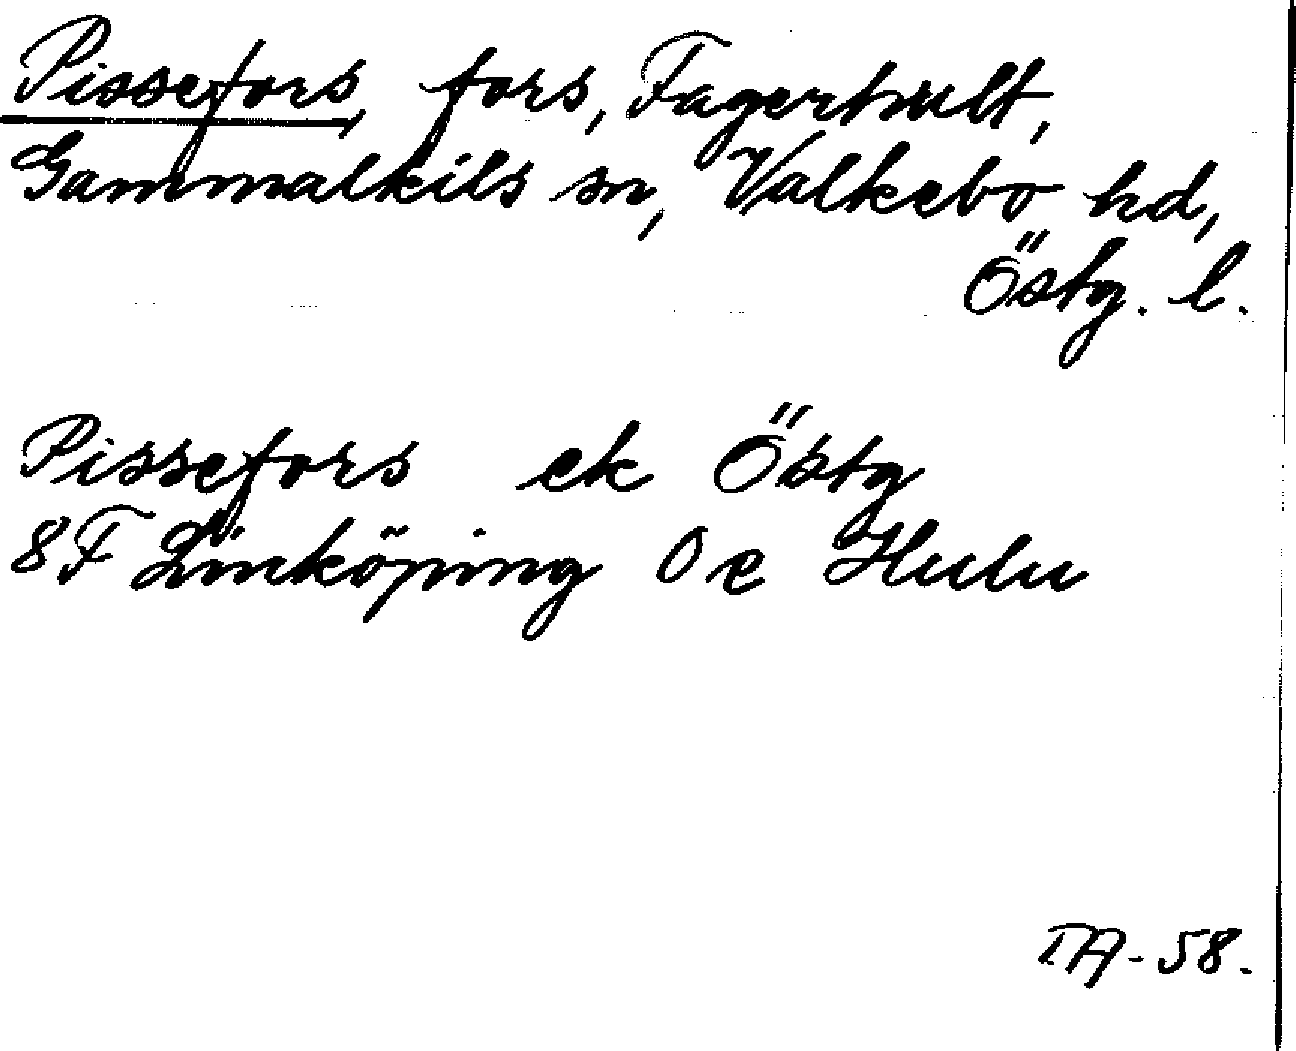 Pissefors, fors, Fagerhult,
Gammalkils sn, Valkebo hd,
Östg. l.
Pissefors ek Östg
8F Linköping 0 e Hulu
TA-58.